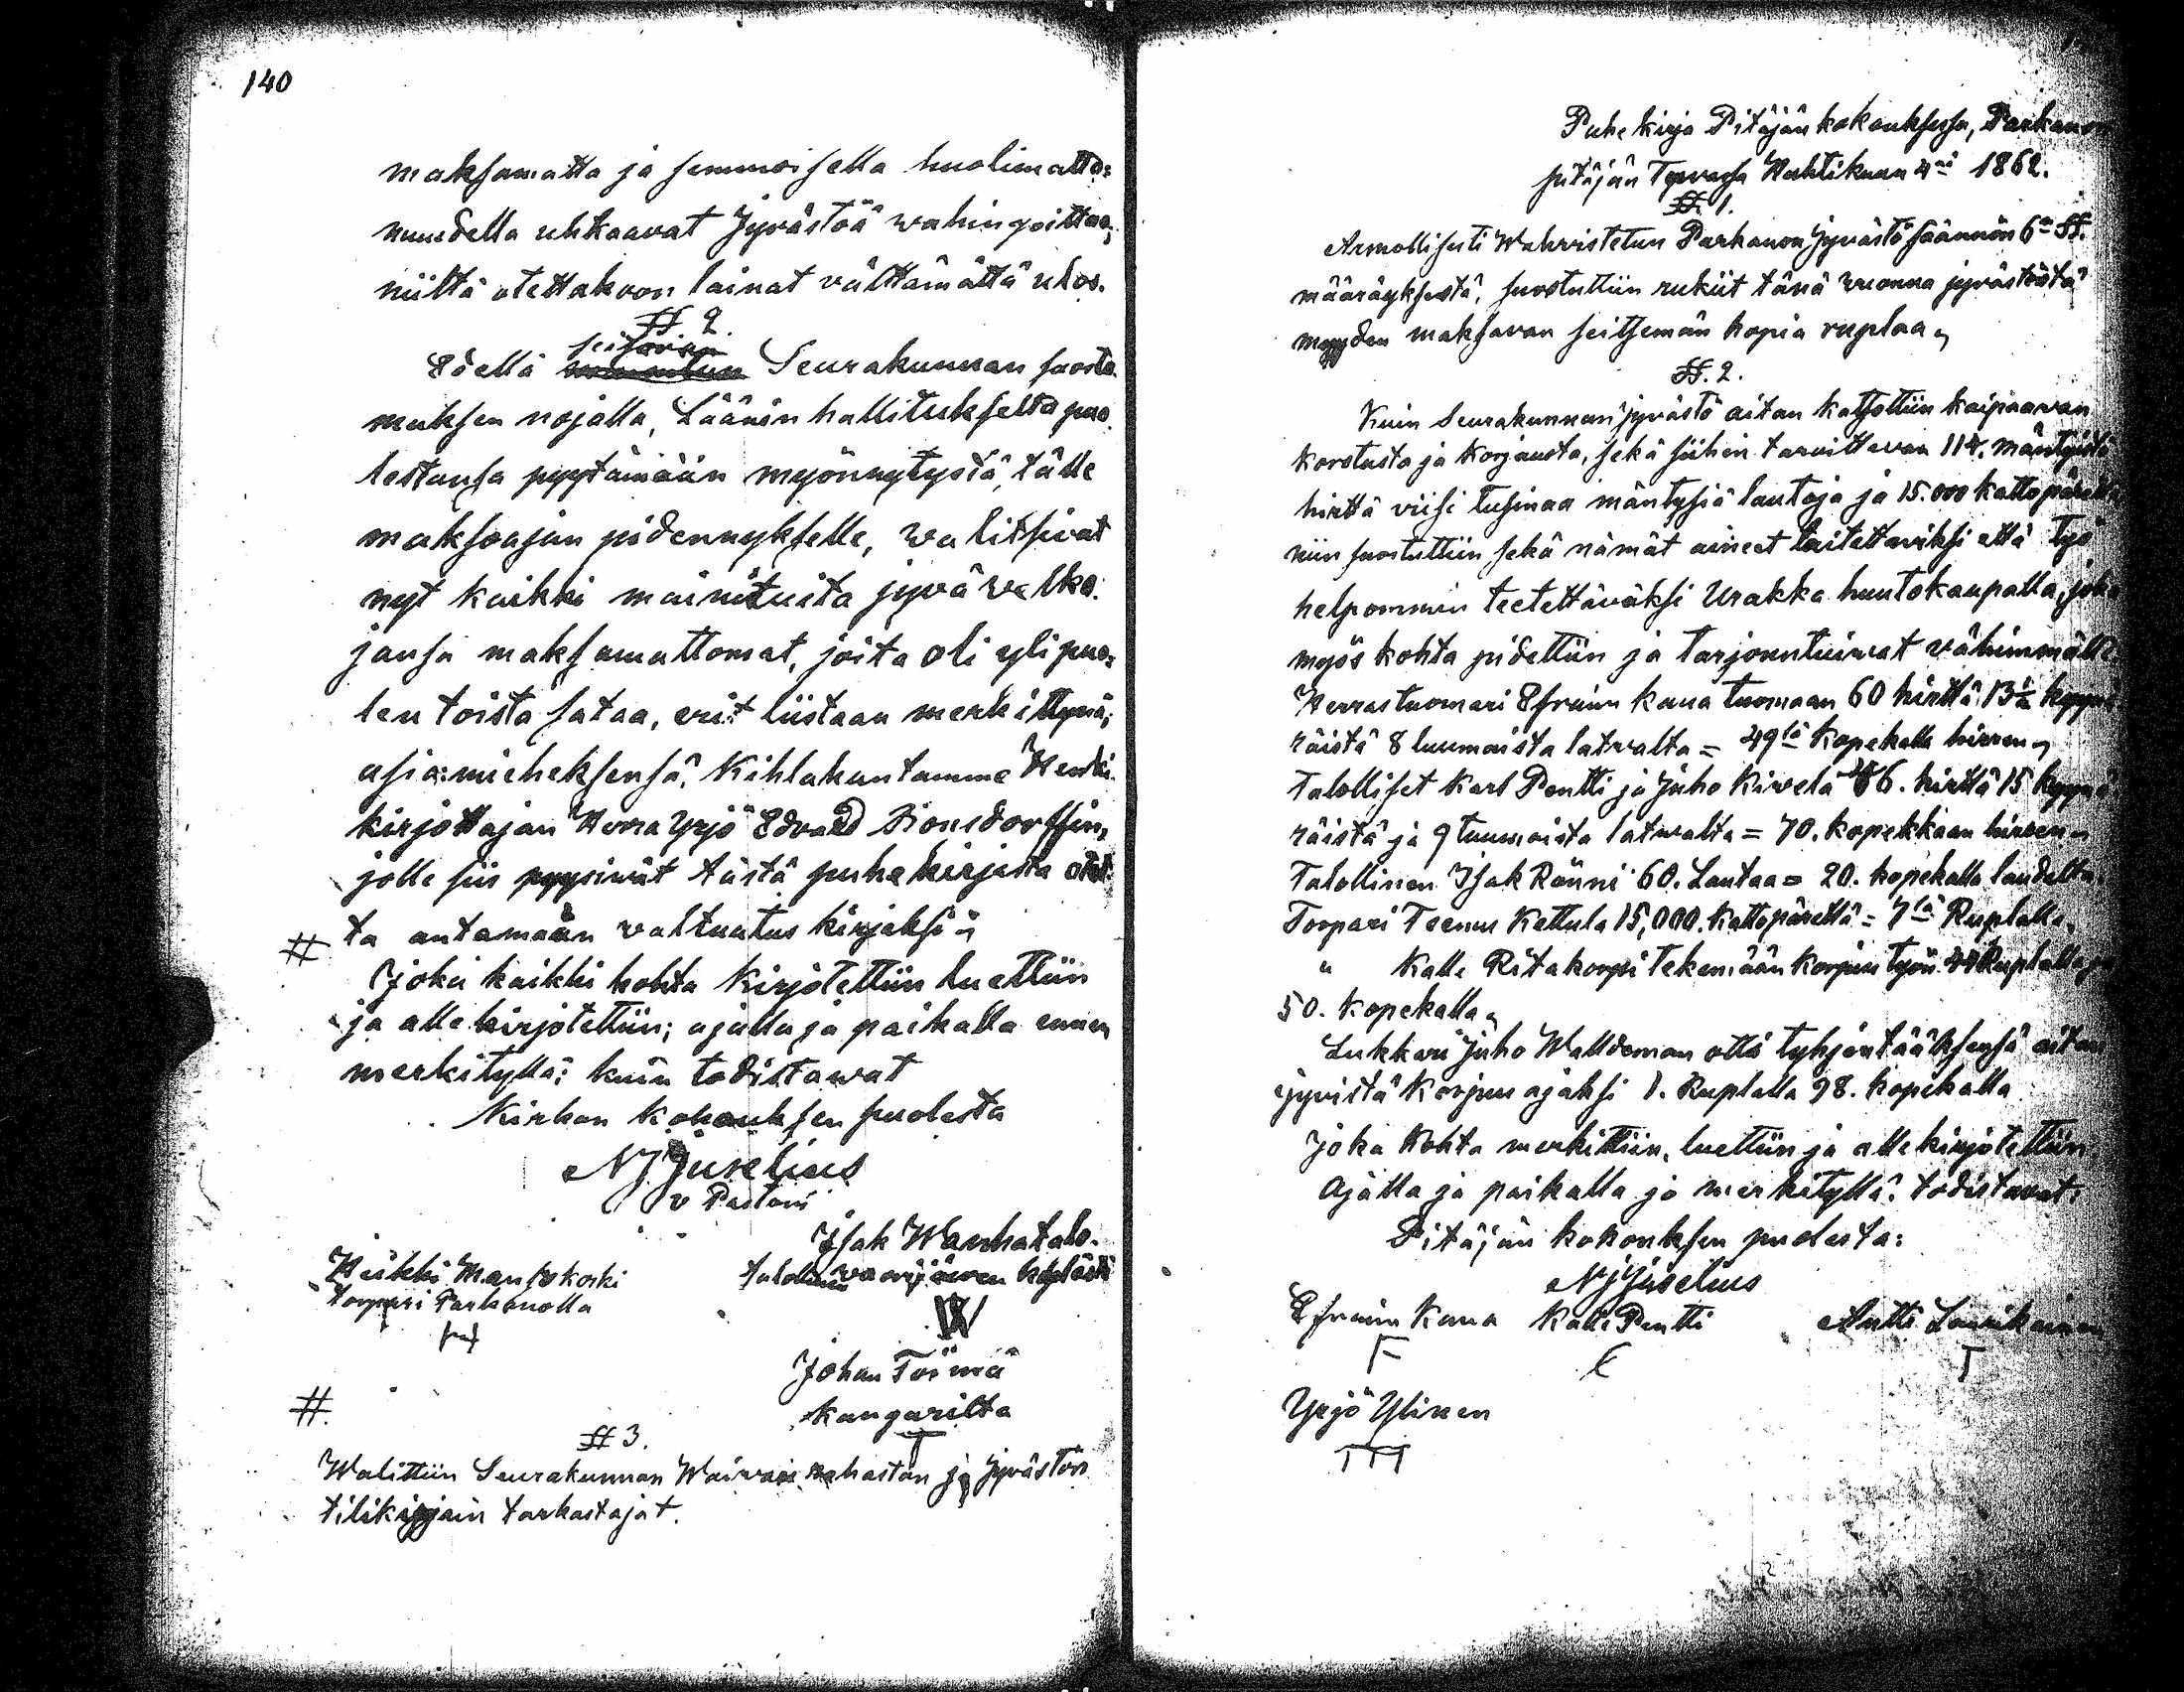 140
maksamatta ja semmoisella huolimatto=
muudella uhkaavat Jyvästöä wahingoittaa,
niiltä otettakoon lainat välttämättä ulos.
§§. 2.
seisovan
Edellä Seurakunnan suostu
muksen nojalla, Läänin hallitukselta puo
lestansa pyytämään myönnytystä, tälle
maksoajan pidennykselle, walitsivat
nyt kaikki mainituita jyvä velko.
jansa maksamattomat, joita oli yli puo=
len toista sataa, erit liistaan merkittynä,
asia=mieheksensä, Kihlakuntamme Henki
kirjottajan Herra Yrjö Edvard Bonsdorffin,
jolle siis pyysiwät tästä puhekirjasta otet
ta antamaan valtuutus kirjaksi„
#
Joka kaikki kohta kirjotettiin luettiin
ja alle kirjotettiin; ajalla ja paikalla ennen
merkityllä; kuin todistawat
Kirkon Kokouksen puolesta
NJ Juselius
v Pastori
Isak Wanhatalo.
talollinen vaorijärven kylästä
Heikki Mansokoski
torpari Parkanolla
Johan Törmä
kangarilta
#.
§§ 3.
Walittiin Seurakunnan Waivais rahaston ja Jyvästön
tilikirjain tarkastajat.
Puhekirja Pitäjänkokouksessa, Parkanon
pitäjän Tuvassa Huhtikuun 4nä 1862.
§§. 1.
Armollisesti Wahvistetun Parkanon Jyvästö säännön 6n §§.
määräyksestä, suostuttiin rukiit tänä vuonna jyvästöstä
myyden maksavan seitsemän hopia ruplaa„
§§. 2.
Kuin Seurakunnan jyvästö aitan katsottiin kaipaavan
korotusta ja korjausta, sekä siihen tarvittavan 114. mäntyistä
hirttä viisi tusinaa mäntysiä lautoja ja 15.000 kattopärettä
niin suostuttiin sekä nämät aineet laitettaviksi että Työ
helpommin teetettäväksi Urakka huutokaupalla, joka
myös kohta pidettiin ja tarjoontuivat vähimmällä
Herrastuomari Efraim Kana tuomaan 60 hirttä 13½ kyynä
räistä 8 tuumaista latvalta = 49lä Kopekalla hirren„
Talolliset Karl Pentti ja Juho Kivelä 56. hirttä 15 kyynä
räistä ja 9 tuumaista latvalta = 70. kopekkaan hirren„
Talollinen Isak Rönni 60. Lautaa = 20. kopekalla laudalta.
Torpari Teemu Kettula 15,000. Kattopärettä = 7lä Ruplalla„
„ Kalle Ritakorpi tekemään korjuu työn 44 Ruplalla ja
50. Kopekalla„
Lukkari Juho Walldeman otti tyhjentääksensä aitan
jyvistä korjuu ajaksi 1. Ruplalla 98. kopekalla
Joka Kohta merkittiin, luettiin ja alle kirjotettiin
Ajalla ja paikalla jo merkityllä: todistavat:
Pitäjän kokouksen puolesta:
NJ Juselius
Efraim Kana Kalle Pentti Antti Laurikainen
Yrjö Ylinen